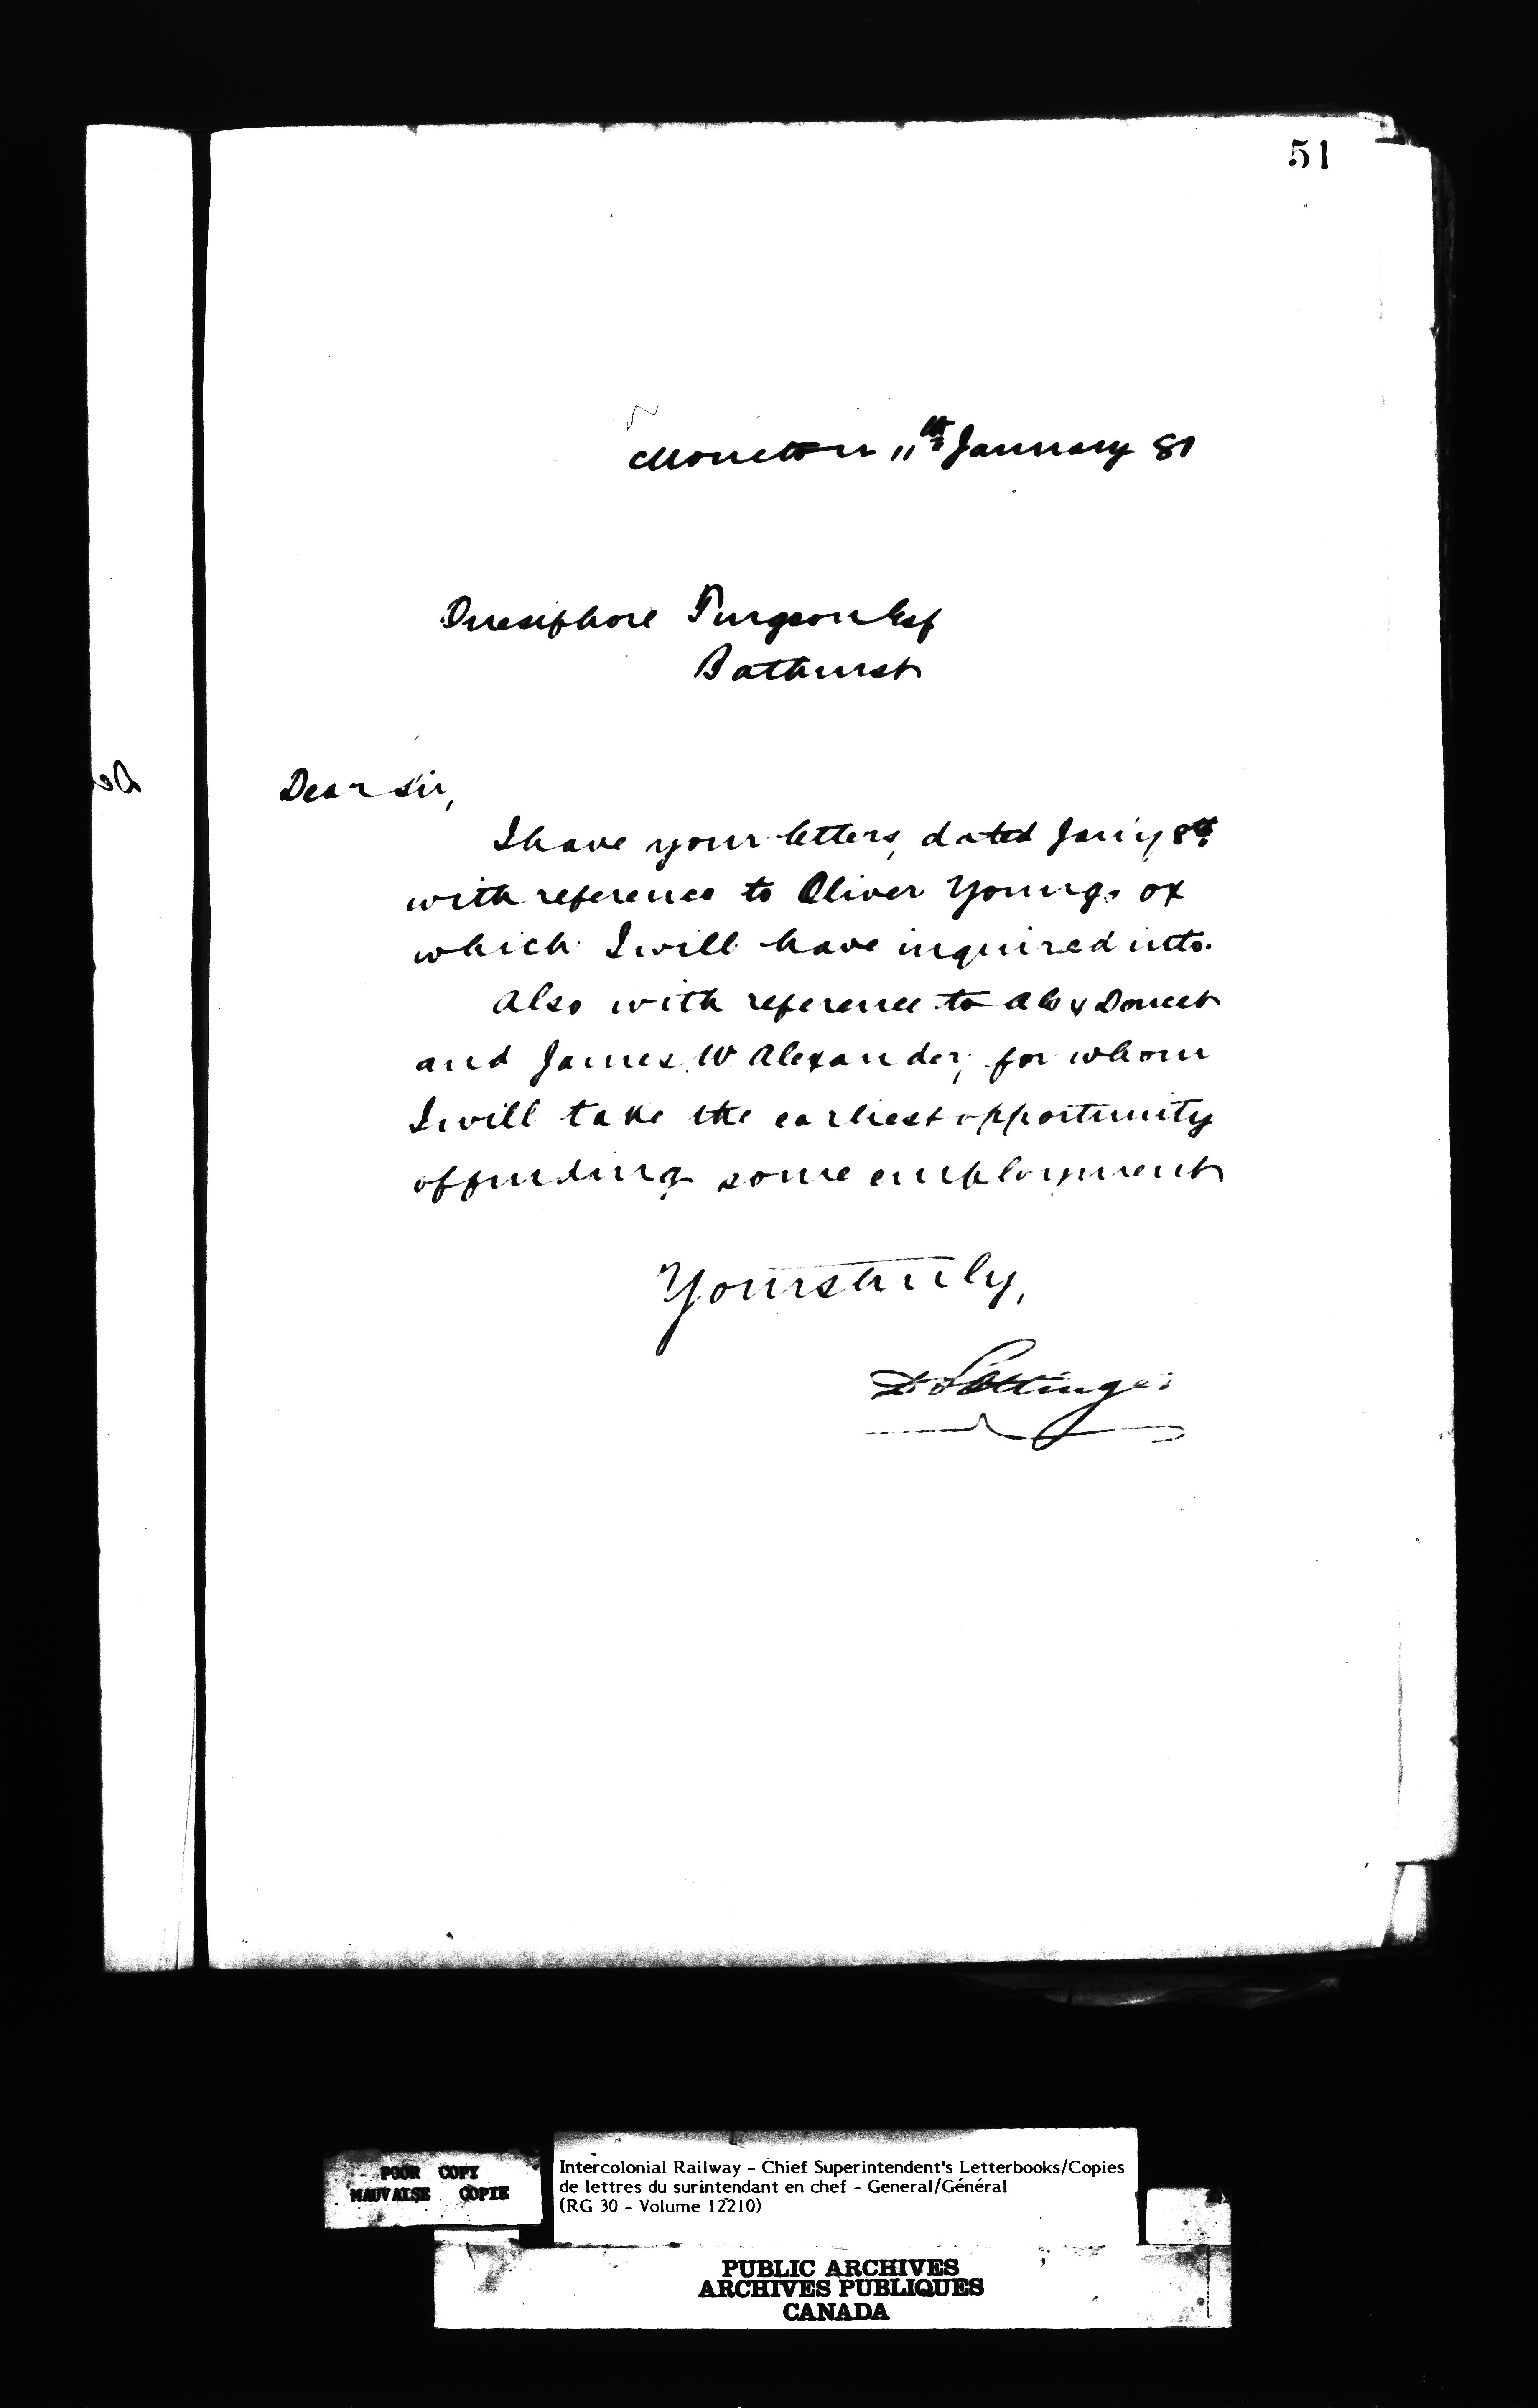 51
Moncton 11th January 81
Onesiphore Turgeon Esq
Bathurst
Dear Sir,
I have your letters, dated Jan'y 8th
with reference to Oliver Youngs ox
which I will have inquired into.
Also with reference to Alex Doucet
and James W Alexander, for whom
I will take the earliest opportunity
of finding some employment
Yours truly,
D Pottinger
De
POOR COPY
MAUVAISE COPIE
Intercolonial Railway - Chief Superintendent's Letterbooks/Copies
de lettres du surintendant en chef - General/Général
(RG 30 - Volume 12210)
PUBLIC ARCHIVES
ARCHIVES PUBLIQUES
CANADA